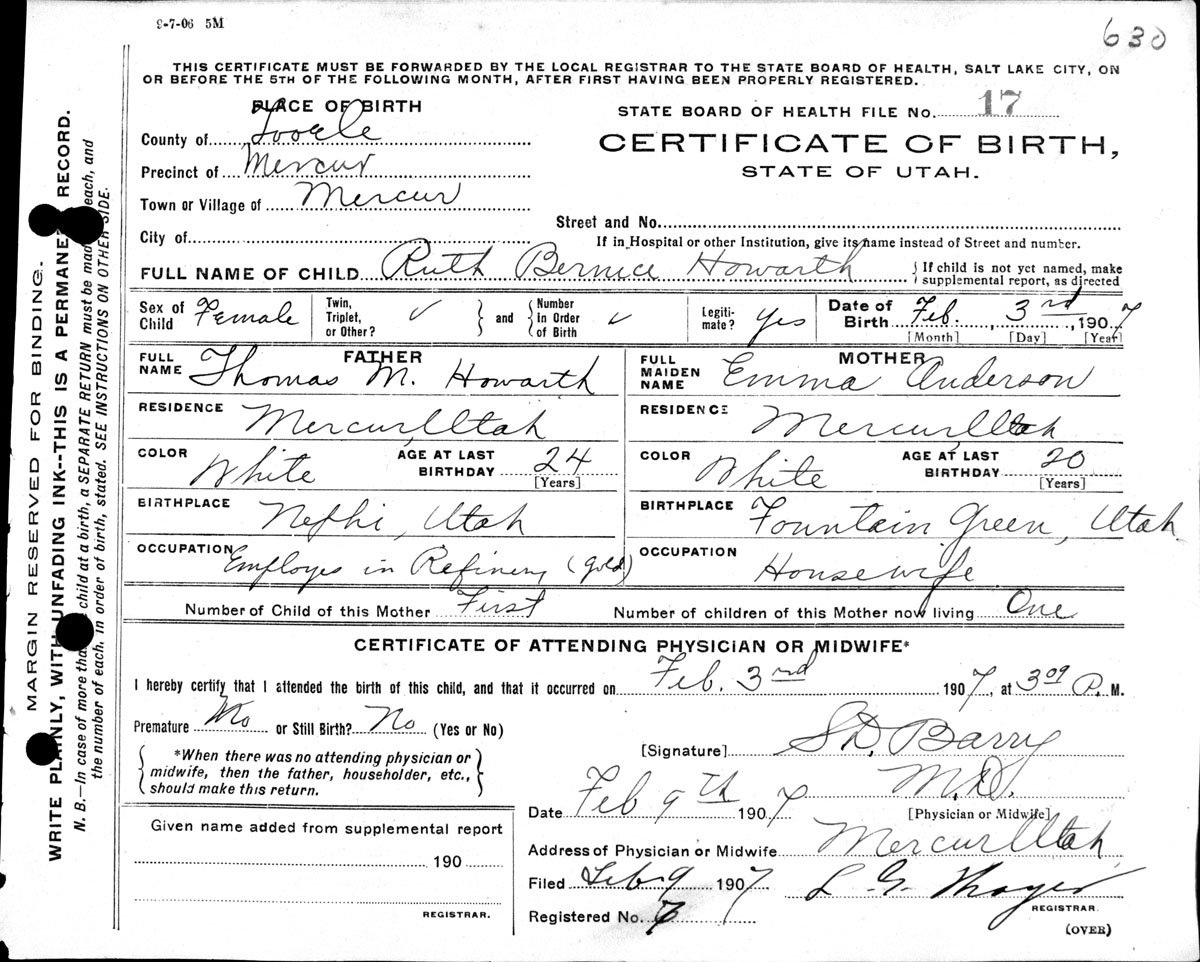 9-7-06 5M
630
THIS CERTIFICATE MUST BE FORWARDED BY THE LOCAL REGISTRAR TO THE STATE BOARD OF HEALTH, SALT LAKE CITY, ON
OR BEFORE THE 5TH OF THE FOLLOWING MONTH, AFTER FIRST HAVING BEEN PROPERLY REGISTERED.
PLACE OF BIRTH
STATE BOARD OF HEALTH FILE No. 17
County of Tooele
CERTIFICATE OF BIRTH,
STATE OF UTAH.
Precinct of Mercur
Town or Village of Mercur
Street and No.
City of
If in Hospital or other Institution, give its name instead of Street and number.
FULL NAME OF CHILD Ruth Bernice Howarth { If child is not yet named, make supplemental report, as directed
Sex of Child Female Twin, Triplet, or Other? ✓ } and { Number in Order of Birth ✓ Legiti-mate? Yes Date of Birth Feb. 3rd, 1907
[Month] [Day] [Year]
FATHER
FULL NAME Thomas M. Howarth
RESIDENCE Mercur, Utah
COLOR White AGE AT LAST BIRTHDAY 24
[Years]
BIRTHPLACE Nephi, Utah
OCCUPATION Employe in Refinery (gold)
MOTHER
FULL MAIDEN NAME Emma Anderson
RESIDENCE Mercur, Utah
COLOR White AGE AT LAST BIRTHDAY 20
[Years]
BIRTHPLACE Fountain Green, Utah
OCCUPATION Housewife
Number of Child of this Mother First Number of children of this Mother now living One
CERTIFICATE OF ATTENDING PHYSICIAN OR MIDWIFE*
I hereby certify that I attended the birth of this child, and that it occurred on Feb. 3rd 1907, at 3 09 P. M.
Premature No or Still Birth? No (Yes or No)
{ *When there was no attending physician or
midwife, then the father, householder, etc.,
should make this return. }
[Signature] S.D. Barry
M.D.
[Physician or Midwife]
Date Feb 9th 1907
Given name added from supplemental report
190
REGISTRAR.
Address of Physician or Midwife Mercur Utah
Filed Feb 9 1907 L G Thayer
REGISTRAR
Registered No. 7
(OVER)
MARGIN RESERVED FOR BINDING.
WRITE PLAINLY, WITH UNFADING INK--THIS IS A PERMANE RECORD.
N. B.—In case of more tha child at a birth, a SEPARATE RETURN must be mad each, and
the number of each, in order of birth, stated. SEE INSTRUCTIONS ON OTHER SIDE.